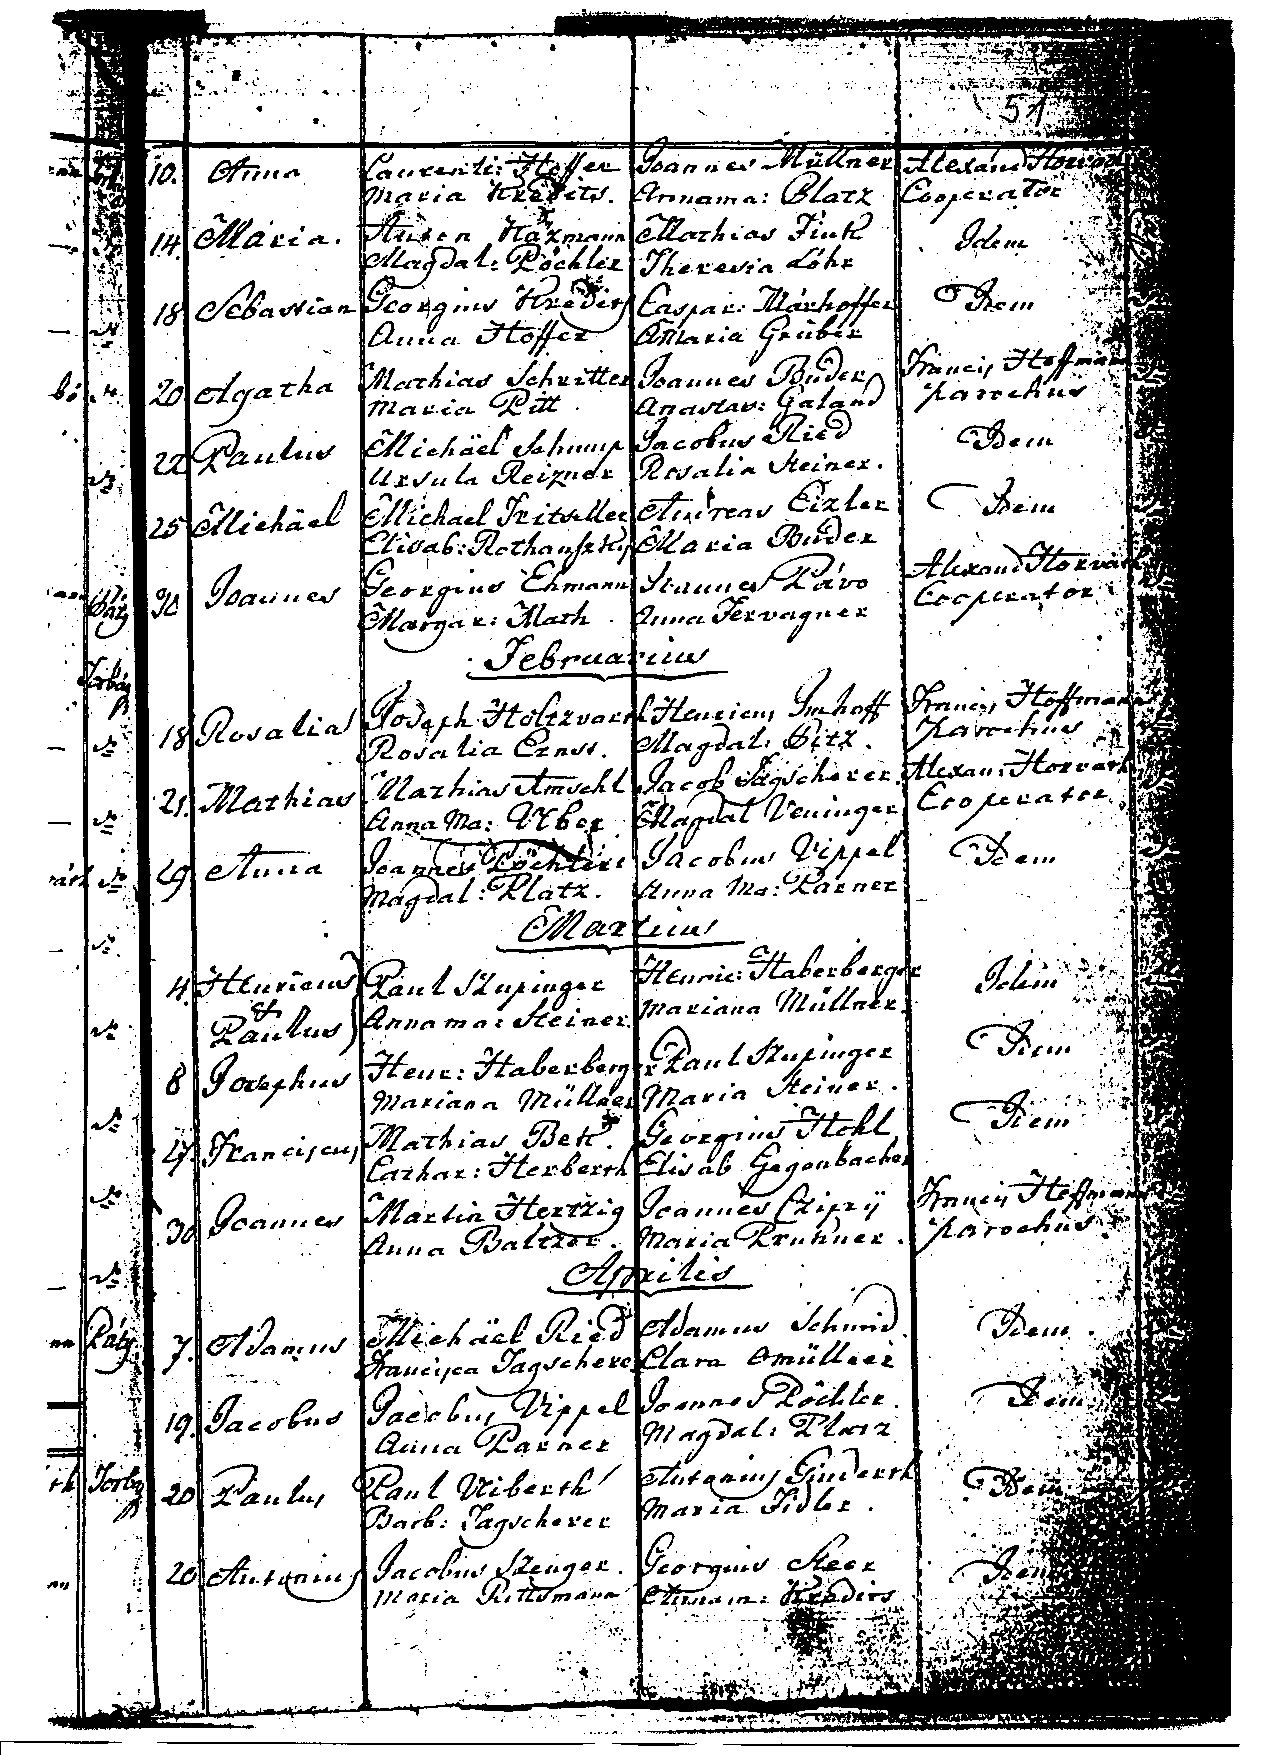 51
10. Anna Laurenti: Hoffer Joannes Müllner Alexand Horvath
Maria Kredits. Annama: Platz Cooperator
14. Maria. Anton Haxmann Mathias Fink Idem
Magdal: Pöchler Theresia Löhr
18 Sebastian Georgius Kredits Caspar: Márhoffer Idem
Anna Hoffer AMaria Gruber
20 Agatha Mathias Schritter Joannes Buder Francis Hoffmann
Maria Pitt Anastas: Galand parochus
22 Paulus Michäel Schump Jacobus Ried Idem
Ursula Reizner Rosalia Steiner.
25 Michäel Michael Fritschler Andreas Eixler Idem
Elisab: Rothanszky Maria Buder
Páty 30 Joannes Georgius Ehmann Joannes Pávo Alexand Horvath
Margar: Math Anna Fervagner Cooperator
Februarius
Torbágy
18 Rosalia Joseph Holtzvarth Henricus Imhoff Francis Hoffmann
Rosalia Ernst. Magdal: Pitz. parochus
21. Mathias Mathias Amschl Jacob Jagscherer. Alexan: Horvath
Anna Ma: Viber Magdal Veninger Cooperator
29 Anna Joannes Pöchler Jacobus Vippel Idem
Magdal: Platz. Anna Ma: Parner
Martius
4. Henricus Paul Stupinger Henric: Haberberger Idem
& Paulus Annama: Steiner. Mariana Müllner.
8 Josephus Henr: Haberberger Paul Stupinger Idem
Mariana Müllner Maria Steiner.
17. Franciscus Mathias Bek. Georgius Hohl Idem
Cathar: Herberth Elisab Gegenbacher
30 Joannes Martin Hertzig Joannes Czipry Francis Hoffmann
Anna Baltzer. Maria Pruhner. parochus.
Aprilis
Páty 7. Adamus Michäel Ried Adamus Schmid. Idem.
Francisca Jagscherer Clara Omüllner
19. Jacobus Jacobus Vippel Joannes Pöchler. Idem
Anna Parner Magdal: Platz
Torbágy 20 Paulus Paul Viberth Antonius Guderth Idem
Barb: Jagscherer Maria Fidler.
20 Antonius Jacobus Szenger. Georgius Steer Idem
Maria Rittsmann Kredits